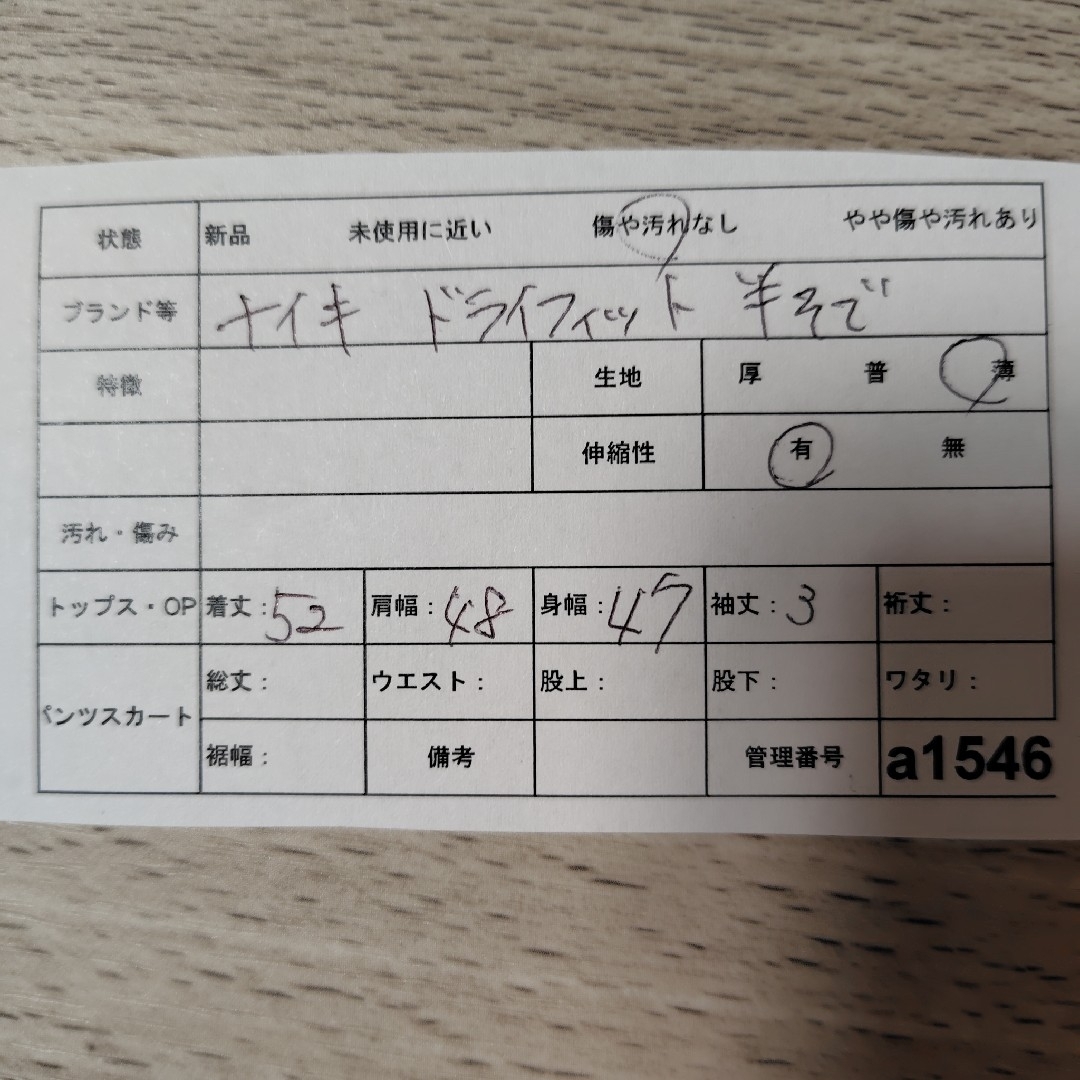 状態 新品 未使用に近い 傷や汚れなし やや傷や汚れあり
ブランド等 ナイキ ドライフィット 半そで
特徴 生地 厚 普 薄
伸縮性 有 無
汚れ・傷み
トップス・OP 着丈：52 肩幅：48 身幅：47 袖丈：3 裄丈：
パンツスカート 総丈： ウエスト： 股上： 股下： ワタリ：
裾幅： 備考 管理番号 a1546